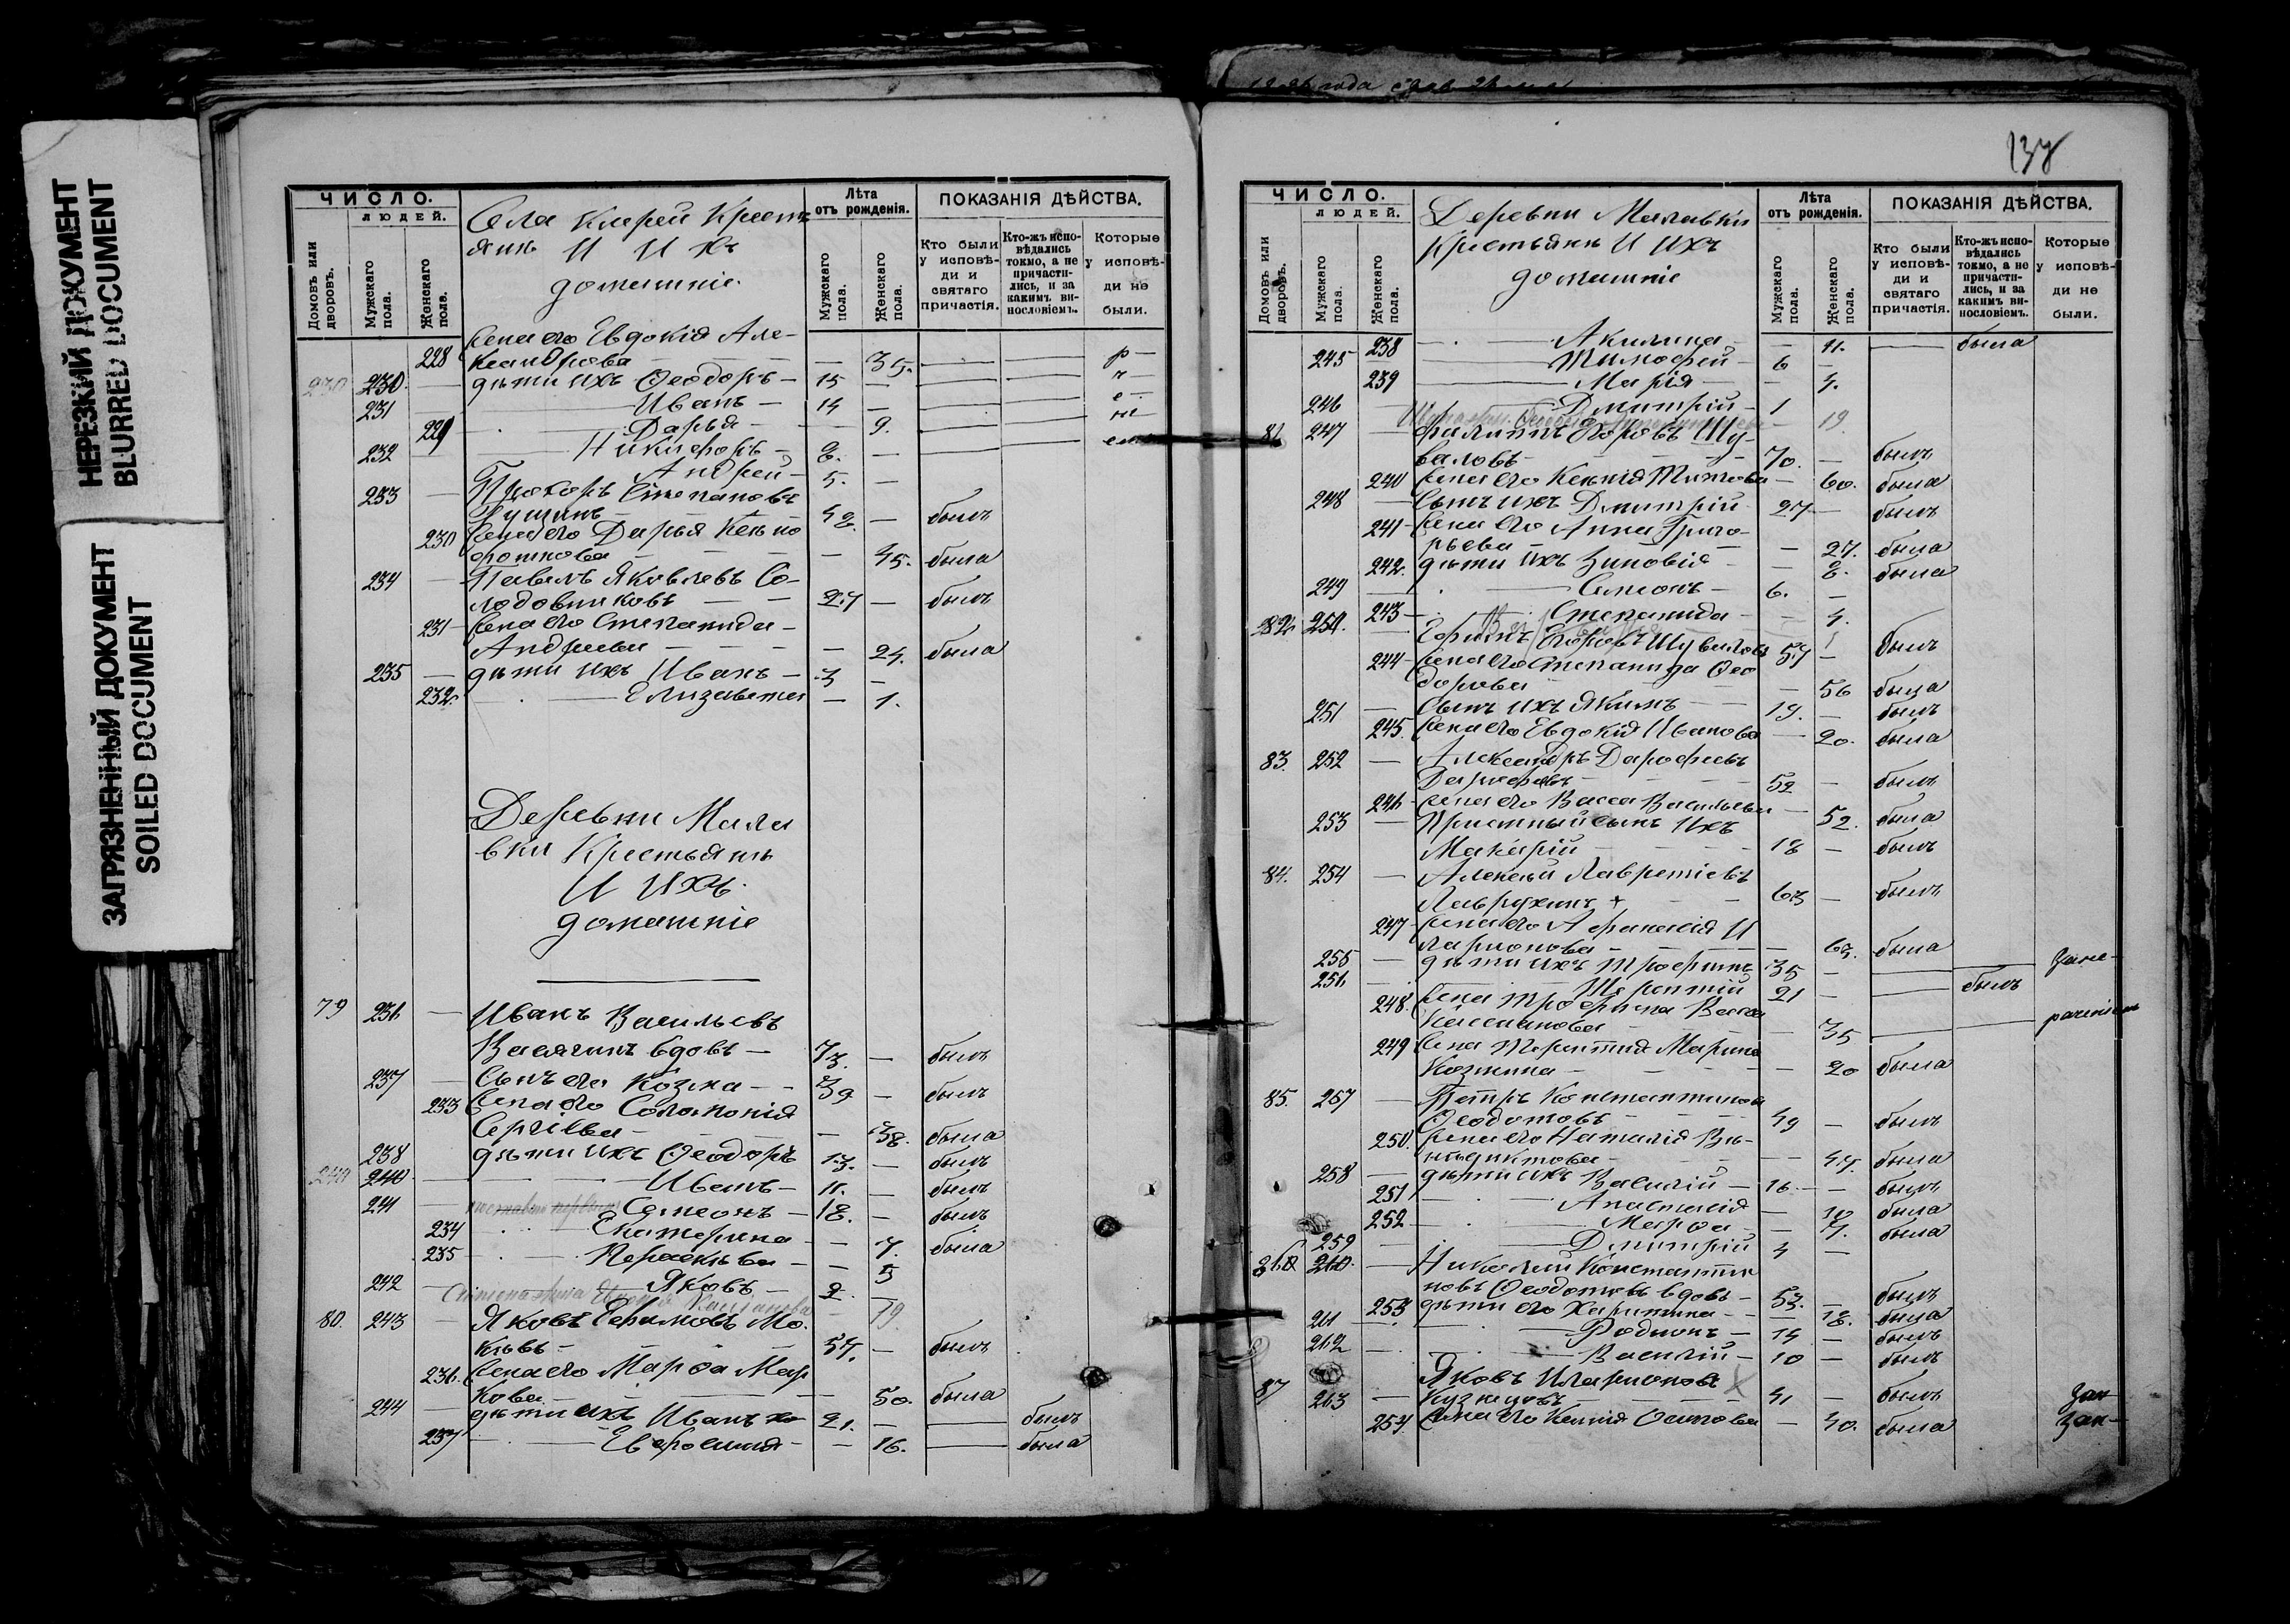 НЕРЕЗКИЙ ДОКУМЕНТ
BLURRED DOCUMENT
ЗАГРЯЗНЕННЫЙ ДОКУМЕНТ
SOILED DOCUMENT
ЧИСЛО.
ЛЮДЕЙ.
Домовъ или дворовъ.
Мужскаго пола.
Женскаго пола.
Села Кирей Кресть
янъ И ИХЪ
домашніе.
Лѣта
отъ рожденія.
Мужскаго пола.
Женскаго пола.
ПОКАЗАНІЯ ДѢЙСТВА.
Кто были
у исповѣ-
ди и
святаго
причастія.
Кто-жъ испо-
вѣдались
токмо, а не
причасти-
лись, и за
какимъ ви-
нословіемъ.
Которые
у исповѣ-
ди не
были.
жена его Евдокія Але-
228 ксандрова — 35.
230 230. дѣти ихъ Ѳеодоръ — 15
231 Иванъ — 14
229 Дарья — 9.
232 Никифоръ — 8.
Андрей — 5.
233 Прохоръ Степановъ
48 — былъ
230 жена его Дарья Ксено
фонтова — 45. была
234 Павелъ Яковлевъ Со-
лодовниковъ — 27 — былъ
231 жена его Степанида
Андреева — 24. была
235 дѣти ихъ Иванъ — 3
232. Елизавета — 1.
Деревни Мала
вки Крестьянъ
И ИХЪ
домашніе
79 236 Иванъ Васильевъ
вдовъ — 73. — былъ
237 Сынъ его Козма — 39 — былъ
233 жена его Соломонія
Сергеева — 38. была
238 дѣти ихъ Ѳеодоръ 13. — былъ
240 240 Иванъ — 11. — былъ
241 Симеонъ — 18. — былъ
234 Екатерина — 7. была
235 Параскева — 5
242 Яковъ — 2.
19.
80. 243 Яковъ Ефимовъ Мо-
57. — былъ
236. жена его Марѳа Мар
кова — 50. была
244 дѣти ихъ Иванъ 21. — былъ
237 Евфросинія — 16. была
137
ЧИСЛО.
ЛЮДЕЙ.
Домовъ или дворовъ.
Мужскаго пола.
Женскаго пола.
Деревни Малавки
Крестьянъ И ИХЪ
домашніе
Лѣта
отъ рожденія.
Мужскаго пола.
Женскаго пола.
ПОКАЗАНІЯ ДѢЙСТВА.
Кто были
у исповѣ-
ди и
святаго
причастія.
Кто-жъ испо-
вѣдались
токмо, а не
причасти-
лись, и за
какимъ ви-
нословіемъ.
Которые
у исповѣ-
ди не
были.
238 Акилина — 11. — была
245 Тимофей — 6
239 Марія — 4.
246 Димитрій — 1
19.
81 247 Филиппъ Егоровъ Шу-
валовъ — 70. — былъ
240 жена его Ксенія Титова — 60. была
248 Сынъ ихъ Димитрій 27 — былъ
241 жена его Анна Григо-
рьева — 27. была
242. дѣти ихъ Зиновія — 8. была
249 Симеонъ — 6.
243 Степанида — 4.
82 250. Егоровъ Шуваловъ 57 — былъ
244 жена его Степанида Ѳео
дорова — 56 была
251 Сынъ ихъ Якимъ — 19. — былъ
245. жена его Евдокія Иванова — 20. была
83. 252 Александръ Дорофеевъ
52 — былъ
246 жена его Васса Васильева — 52. была
253 Пріемный сынъ ихъ
Макарій — 18 — былъ
84. 254 Алексѣй Лаврентіевъ
Лаврухинъ + — 63 — былъ
247 жена его Афанасія И
ларіонова — 63. была
255 дѣти ихъ Трофимъ 35 —
256 Терентій 21 — былъ
248. жена Трофима Васса
35
249 жена Терентія Марина
Козмина — 20 была
85. 257 Петръ Константиновъ
Ѳеодотовъ — 49 — былъ
250. жена его Наталія Ве-
недиктова — 47. была
258 дѣти ихъ Василій — 16. — былъ
251 Анастасія — 10 была
252 Марѳа — 7. была
259 Димитрій 4 —
260 Николай Константи
новъ Ѳеодотовъ вдовъ — 53. — былъ
253 дѣти его Харитина — 18. была
261 Родіонъ — 14 — былъ
262 Василій — 10 — былъ
87 263 Яковъ Иларіоновъ
Кузнецовъ — 41 — былъ
254. жена его Ксенія Осипова — 40. была